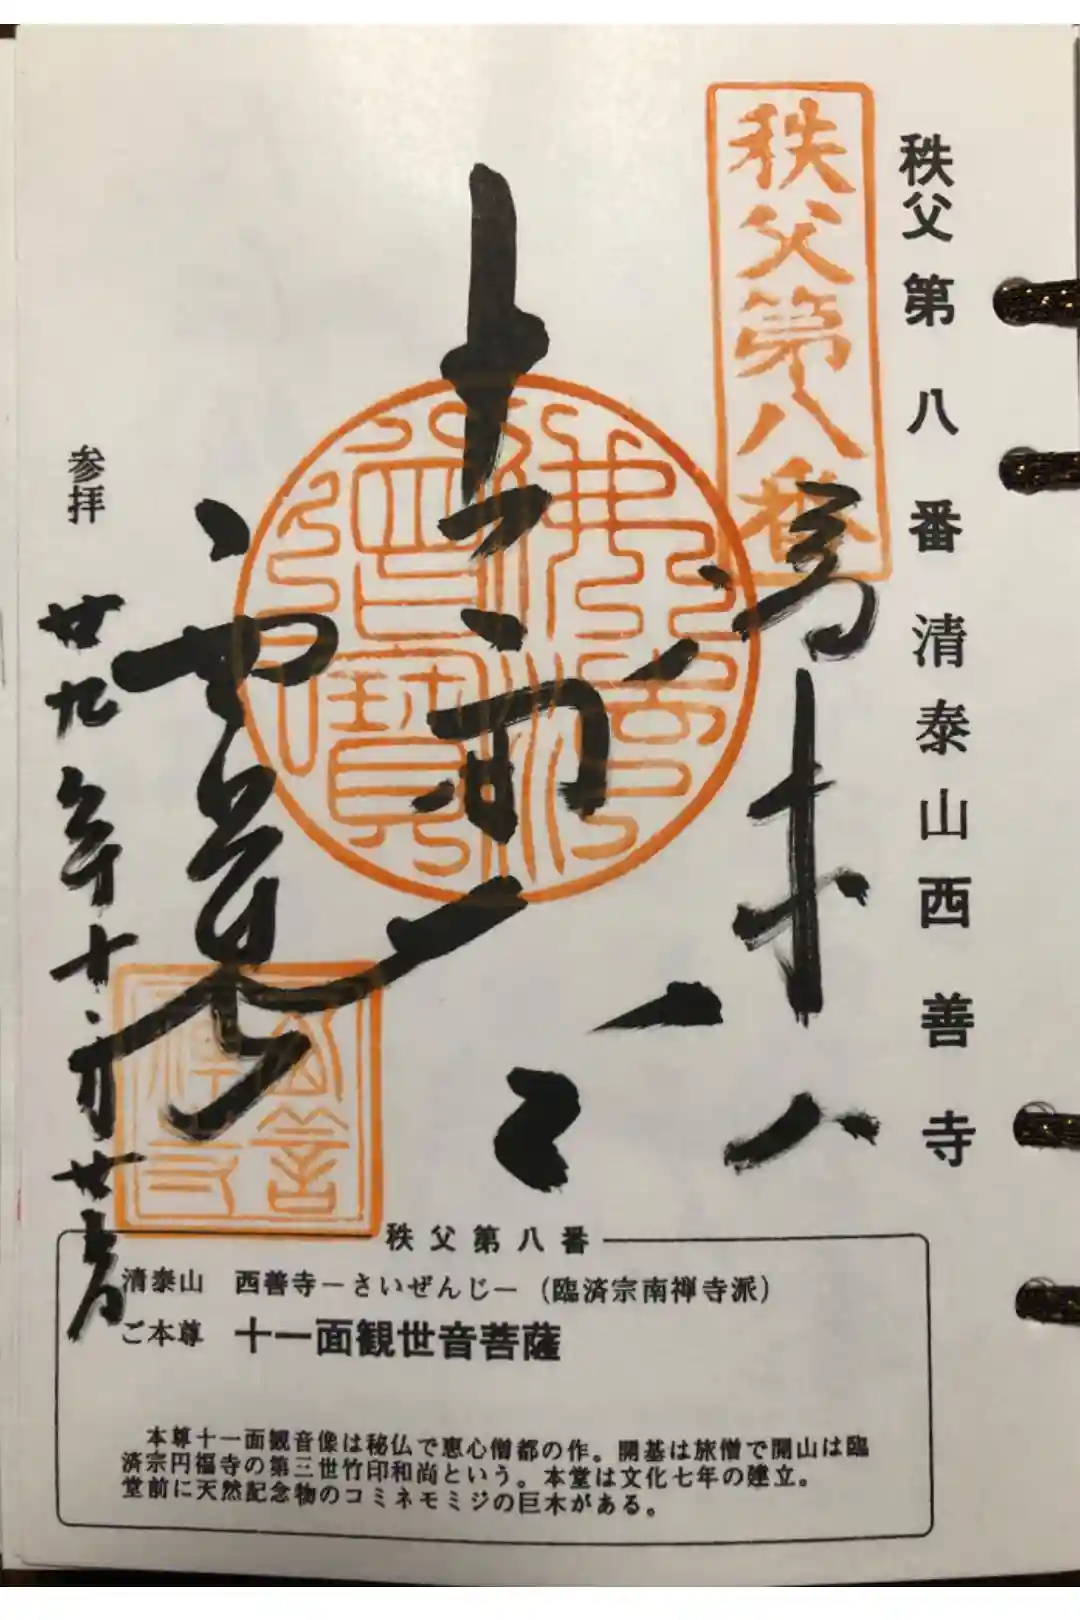 秩父第八番清泰山西善寺
秩父第八番
佛法僧寶
参拝
廿九年十
秩父第八番
清泰山　西善寺－さいぜんじ－（臨済宗南禅寺派）
ご本尊　十一面観世音菩薩
本尊十一面観音像は秘仏で恵心僧都の作。開基は旅僧で開山は臨
済宗円福寺の第三世竹印和尚という。本堂は文化七年の建立。
堂前に天然記念物のコミネモミジの巨木がある。